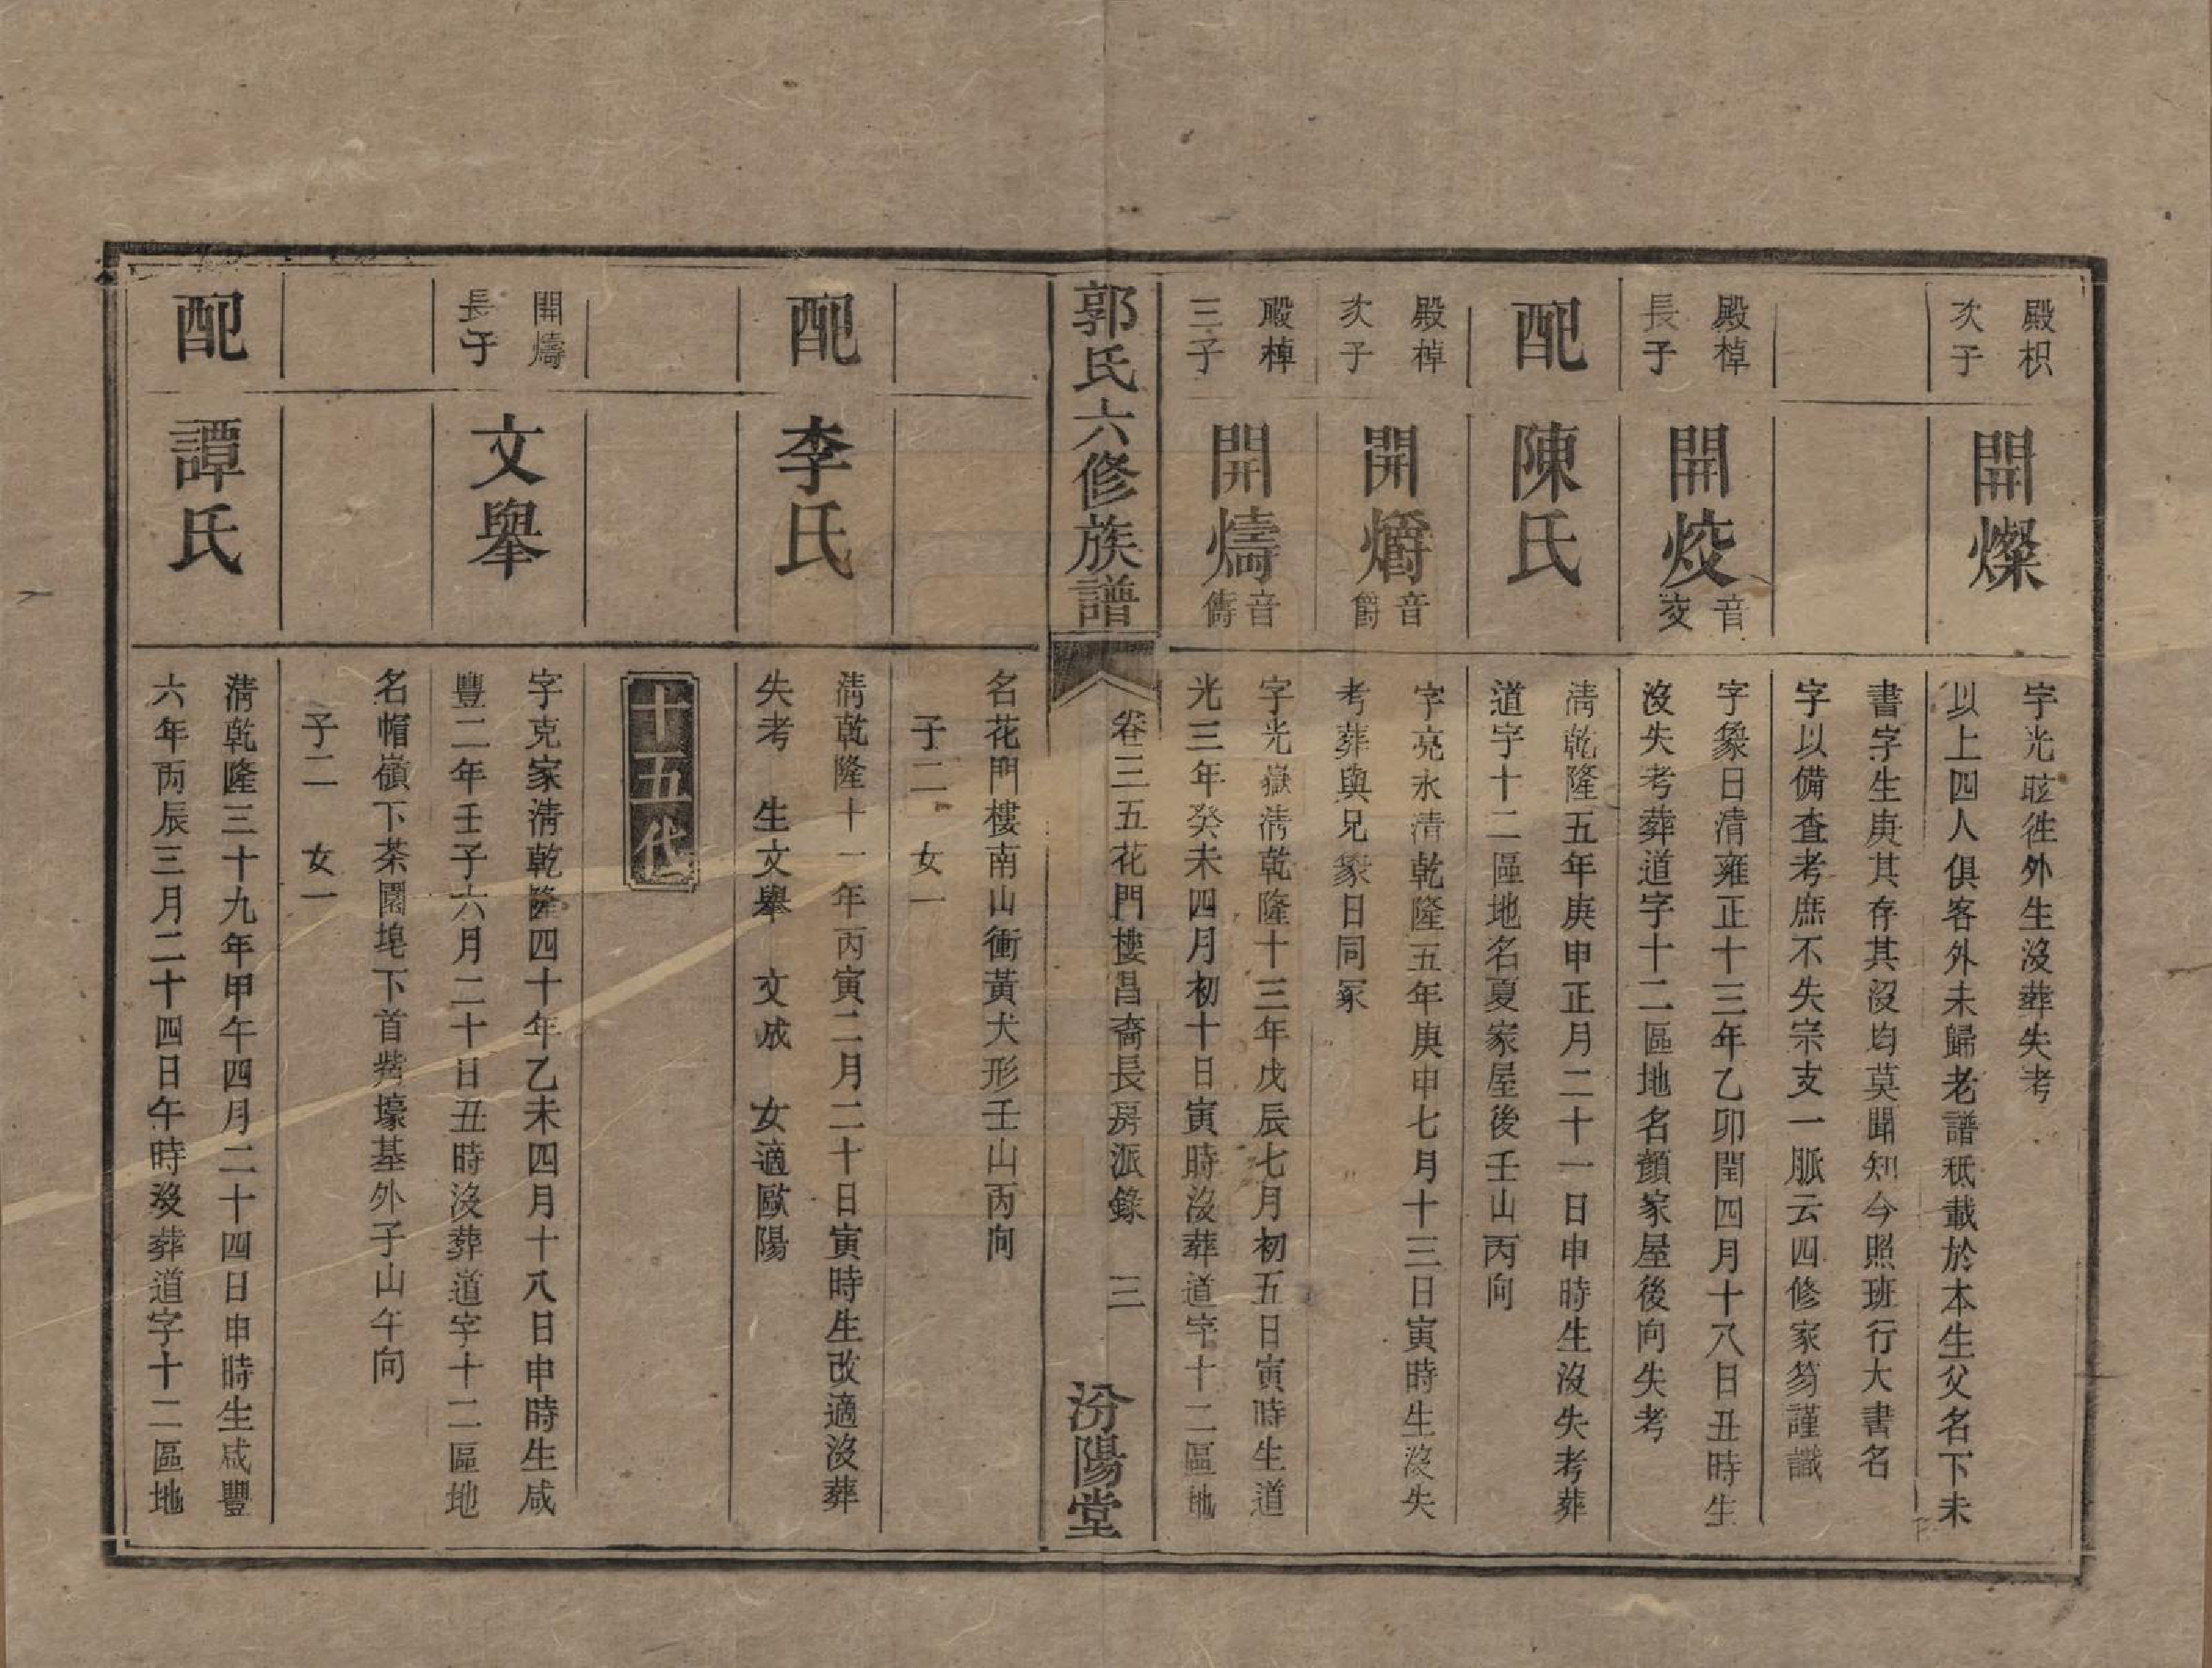 殿枳
次子
開燦
字光昡徃外生沒葬失考
以上四人俱客外未歸老譜秪載於本生父名下未
書字生庚其存其沒均莫聞知今照班行大書名
字以備查考庶不失宗支一脈云四修家芴謹識
殿棹
長子
開㶹
音
交
字象日清雍正十三年乙卯閏四月十八日丑時生
沒失考葬道字十二區地名顏家屋後向失考
配
陳氏
淸乾隆五年庚申正月二十一日申時生沒失考葬
道字十二區地名夏家屋後壬山丙向
殿棹
次子
開爝
音
爵
字亮永清乾隆五年庚申七月十三日寅時生沒失
考葬與兄象日同冢
殿棹
三子
開燽
音
儔
字光嶽淸乾隆十三年戊辰七月初五日寅時生道
光三年癸未四月初十日寅時沒葬道字十二區地
郭氏六修族譜
卷三五花門樓昌裔長房派錄 三
汾陽堂
名花門樓南山衝黃犬形壬山丙向
子二 女一
配
李氏
淸乾隆十一年丙寅二月二十日寅時生改適沒葬
失考 生文舉 文成 女適歐陽
十五代
開燽
長子
文舉
字克家淸乾隆四十年乙未四月十八日申時生咸
豐二年壬子六月二十日丑時沒葬道字十二區地
名帽嶺下茶園塊下首
壕基外子山午向
子二 女一
配
譚氏
淸乾隆三十九年甲午四月二十四日申時生咸豐
六年丙辰三月二十四日午時沒葬道字十二區地